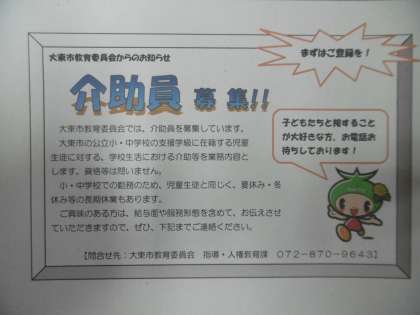 大東市教育委員会からのお知らせ
まずはご登録を！
介助員 募 集!!
大東市教育委員会では、介助員を募集しています。
大東市の公立小・中学校の支援学級に在籍する児童
生徒に対する、学校生活における介助等を業務内容と
します。資格等は問いません。
小・中学校での勤務のため、児童生徒と同じく、夏休み・冬
休み等の長期休業もあります。
ご興味のある方は、給与面や服務形態を含めて、お伝えさせ
ていただきますので、ぜひ、下記までご連絡ください。
子どもたちと接すること
が大好きな方、お電話お
待ちしております！
【問合せ先：大東市教育委員会 指導・人権教育課 072-870-9643】